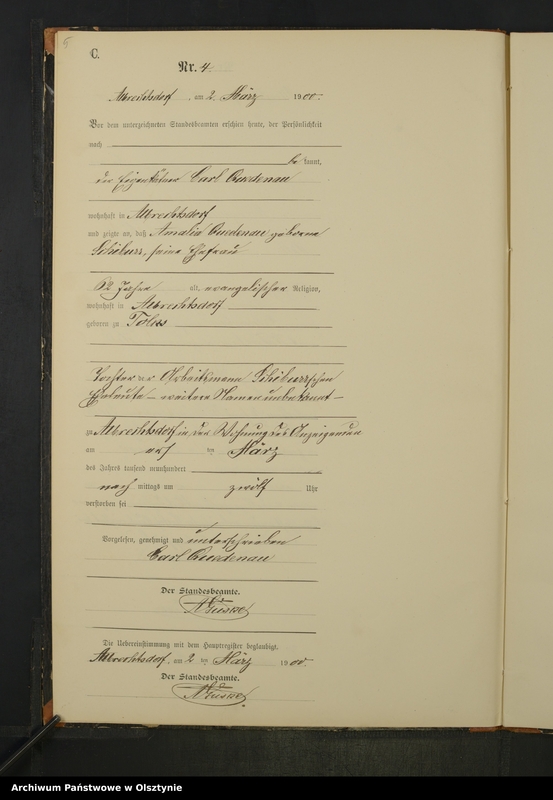 5
C.
Nr. 4.
Albrechtsdorf, am 2. März 1900.
Vor dem unterzeichneten Standesbeamten erschien heute, der Persönlichkeit
nach
be kannt,
der Eigenkätner Carl
wohnhaft in Albrechtsdorf
und zeigte an, daß Amalie geborene
seine Ehefrau
62 Jahre alt, evangelischer Religion,
wohnhaft in Albrechtsdorf
geboren zu Tolks
Tochter der Arbeitsmann
Eheleute – weitere Namen unbekannt –
zu Albrechtsdorf in der Wohnung des Anzeigenden
am ersten März
des Jahres tausend neunhundert
nach mittags um zwölf Uhr
verstorben sei
Vorgelesen, genehmigt und unterschrieben
Carl
Der Standesbeamte.
Die Uebereinstimmung mit dem Hauptregister beglaubigt.
Albrechtsdorf, am 2 ten März 1900.
Der Standesbeamte.
Archiwum Państwowe w Olsztynie